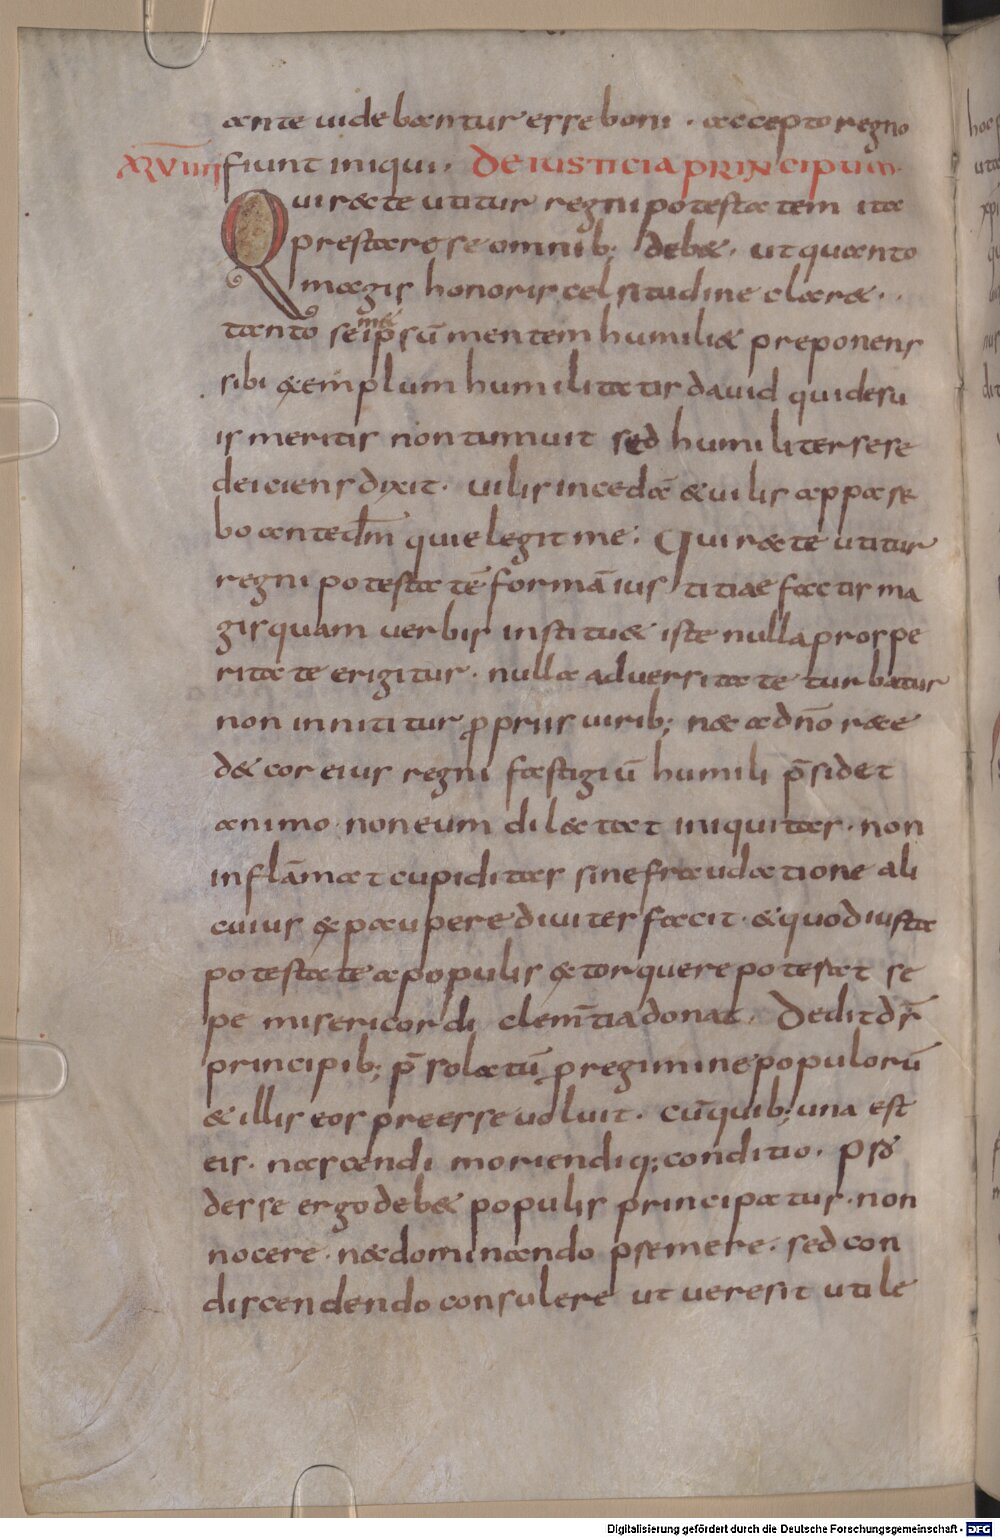 ante uidebantur esse boni · accepto regno
XLVIIII fiunt iniqui · DE IUSTICIA PRINCIPUM·
Qui recte utitur regni potestatem ita
prestare se omnib; deb&· ut quanto
magis honoris celsitudine clar&··
tanto sem&ipsū mentem humili& preponens
sibi exemplum humilitatis dauid qui desu
is meritis non tumuit sed humiliter sese
deiciens dixit· uilis incedā & uilis appare
bo ante dm̄ qui elegit me; Qui recte utitur
regni potestatē formā ius titiae factis ma
gis quam uerbis institu& iste nulla prospe
ritate erigitur· nulla aduersitate turbatur
non innititur ꝓpriis uirib; nec a dn̄o rece
d& cor eius regni fastigiū humili p̄sidet
animo· non eum delectat iniquitas· non
inflāmat cupiditas sine fraudatione ali
cuius ex paupere diuites facit· & quod iusta
potestate a populis extorquere poterat se
pe misericordi clem̄tia donat· Dedit ds̄
principib; p̄solatū ꝓ regimine populorū
& illis eos preesse uoluit· cū quib; una est
eis· nascendi moriendiq; conditio· pro
desse ergo deb& populis principatus· non
nocere· nec dominando premere· sed con
discendendo consulere ut uere sit utile
Digitalisierung gefördert durch die Deutsche Forschungsgemeinschaft - DFG